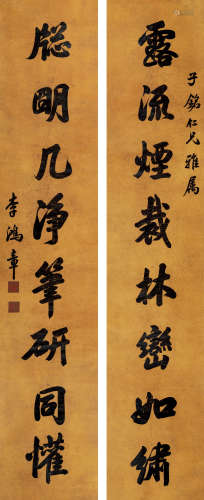 子銘仁兄雅属
露流煙裁林巒如繡
牎明几淨筆研同懽
李鴻章